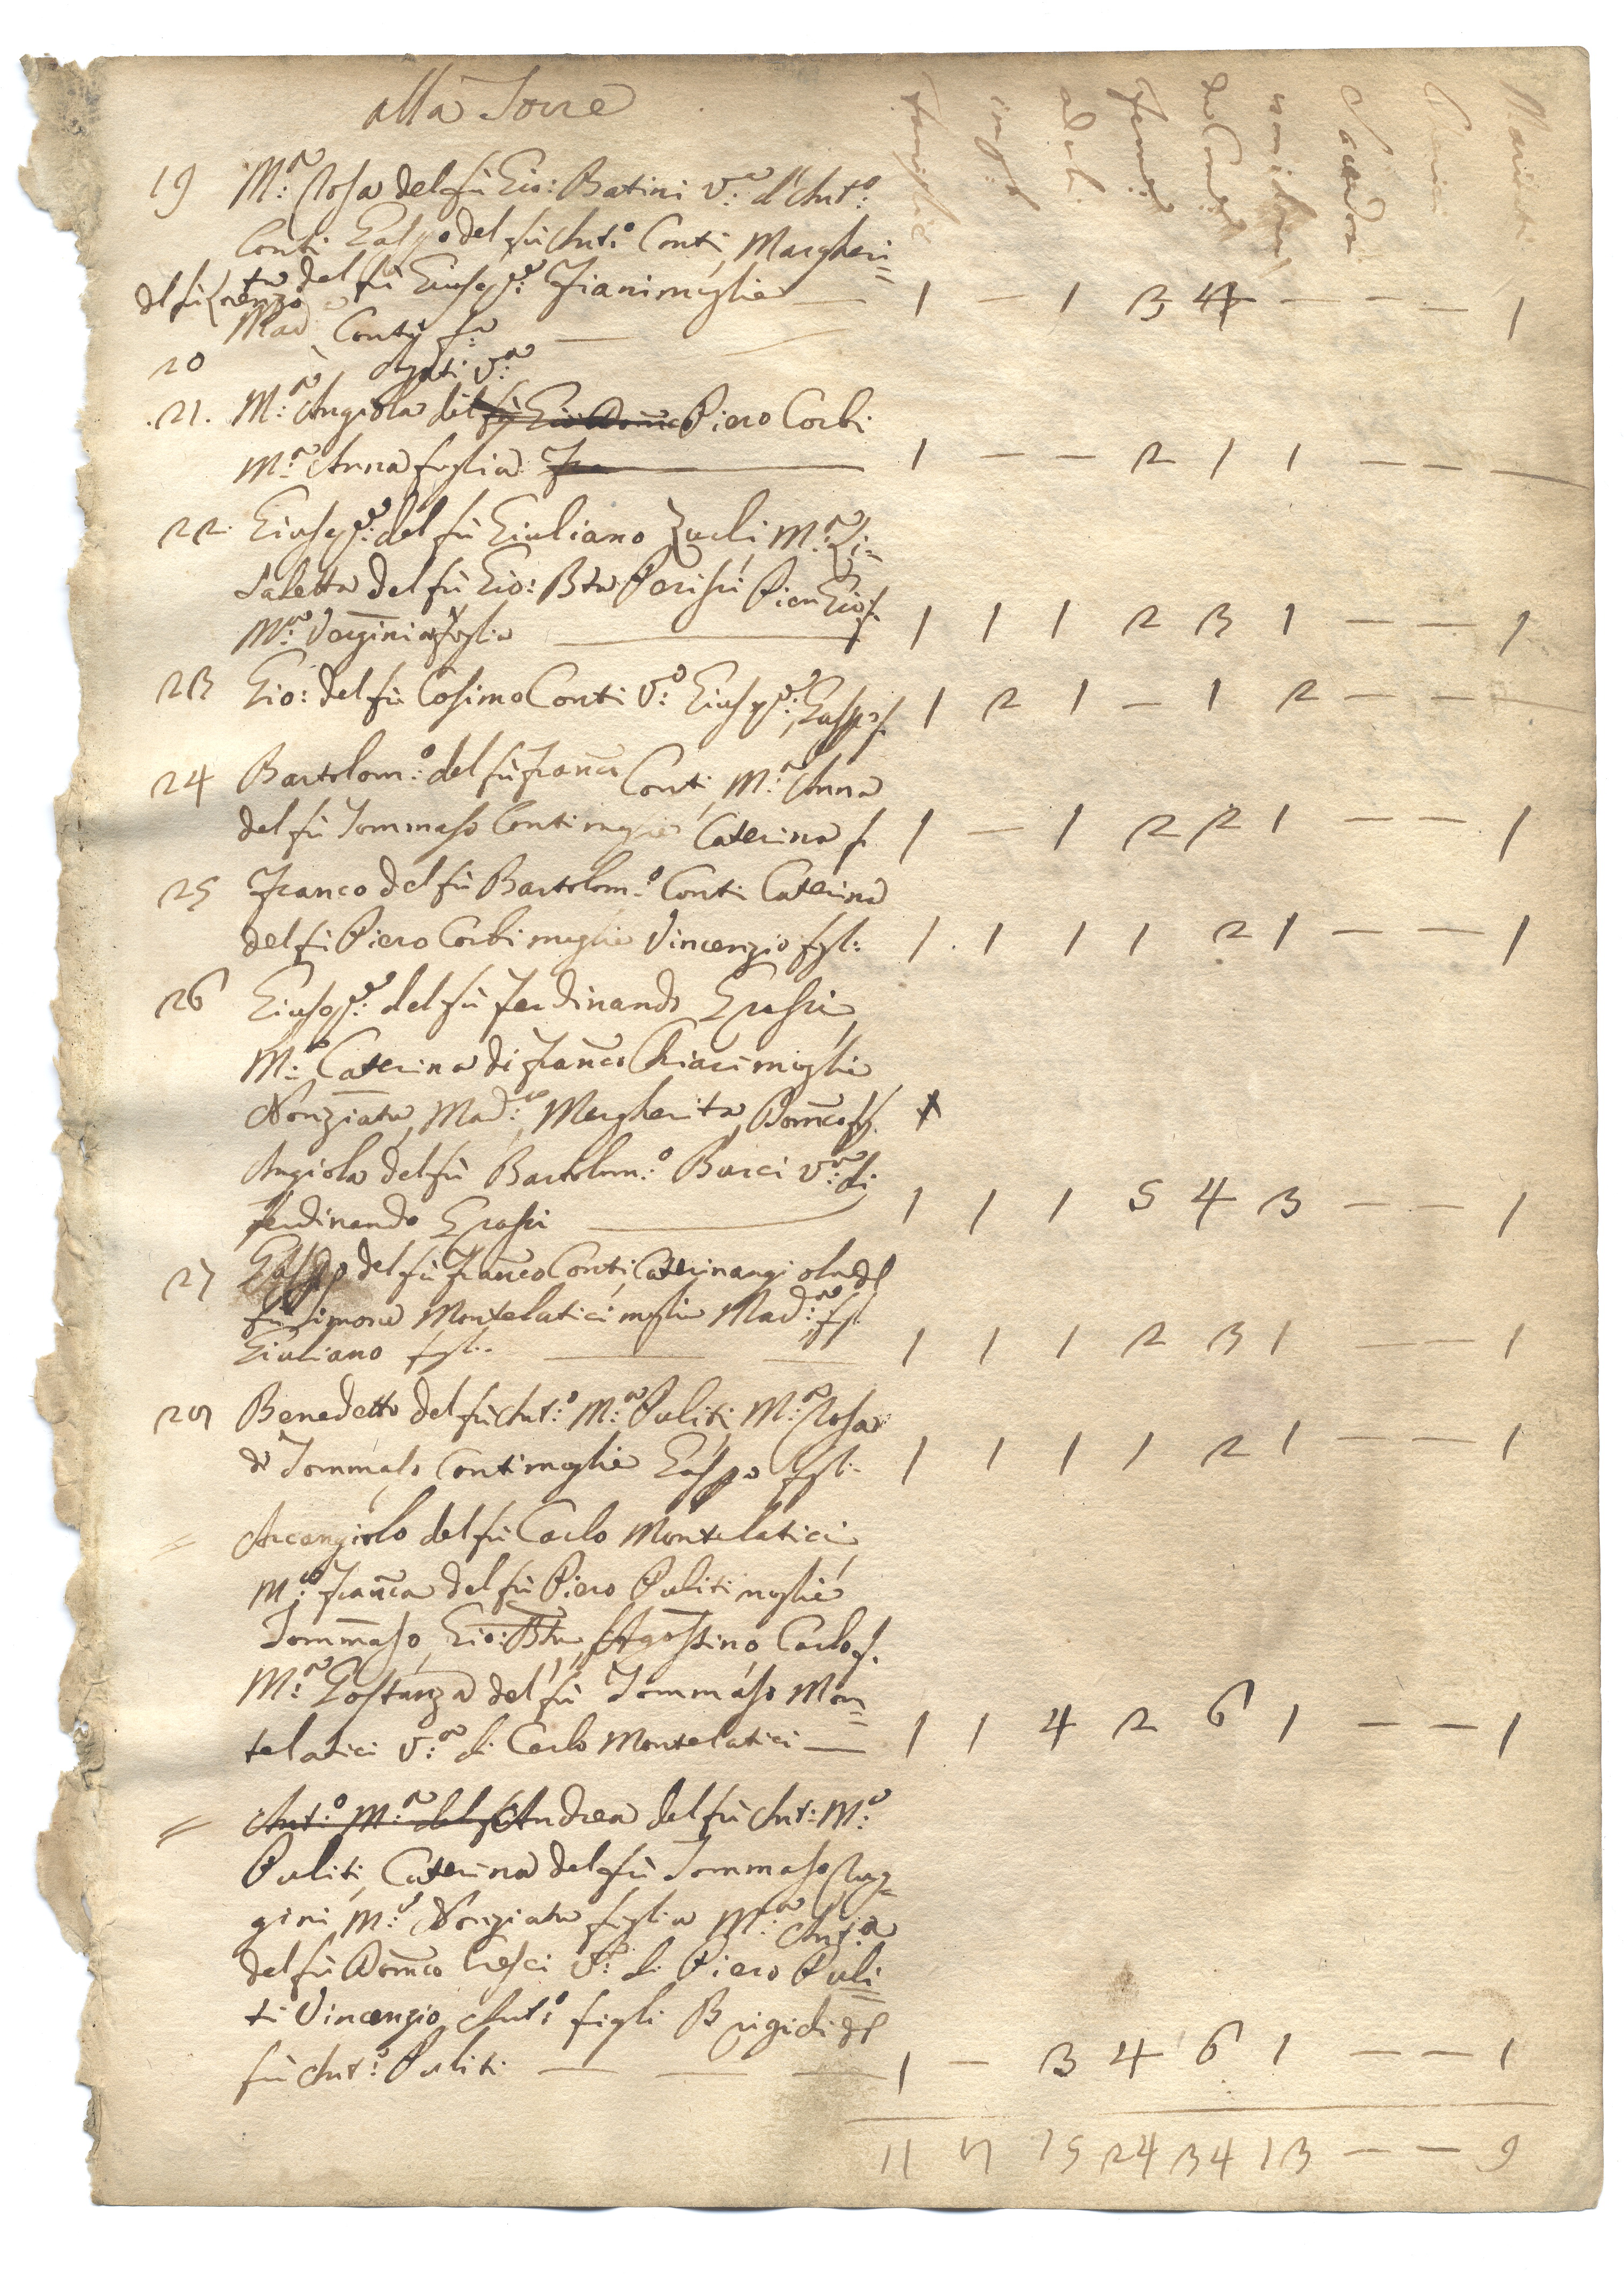 alla Torre
famiglie adul. femine da Com. Sacerdoti Chierici Mariti
19 M:ª Rosa del fù Gio: Batini V:ª d'Ant:º
Conti Gaspo del fù Ant:º Conti, Margheri=
ta del fù Giusep:e Fiani moglie — 1 – 1 3 4 – – – 1
del fù Lorenzo
Mad:ª Conti f:ª —
20 Agati V:ª
.21. M:ª Angiola del fù Gio Dom̄co Piero Corbi
M:ª Anna figlia — 1 – – 2 1 1 – – –
22. Giusep:e del fù Giuliano Zucli, M:ª Li=
sabetta del fù Gio: Bta Perisi Pier Gio: f.
M:ª Verginia figlia — 1 1 1 2 3 1 – – 1
23 Gio: del fù Cosimo Conti V:º Giusep:e, Gaspo f. 1 2 1 – 1 2 – – –
24 Bartolom:º del fù Franco Conti, M:ª Anna
del fù Tommaso Conti moglie Caterina f. 1 – 1 2 2 1 – – 1
25 Franco del fù Bartolom:º Conti Caterina
del fù Piero Corbi moglie Vincenzio figl: 1. 1 1 1 2 1 – – 1
26 Giusep:e del fù Ferdinando Grassi,
M:ª Caterina di Franco Chiari moglie
Nonziata, Mad:ª, Margherita, Dom̄co ff.
Angiola del fù Bartolom:º Burci V:ª di
Ferdinando Grassi — 1 1 1 5 4 3 – – 1
27 Gaspo del fù Franco Conti, Caterinangiola del
fù Simone Montelatici moglie Mad:ª fig:
Giuliano figl: — 1 1 1 2 3 1 – – 1
28 Benedetto del fù Ant:º M:ª Puliti, M:ª Rosa
di Tommaso Conti moglie Gaspo figl: 1 1 1 1 2 1 – – 1
= Arcangiolo del fù Carlo Montelatici,
M:ª Franca del fù Piero Puliti moglie
Tommaso, Gio: Bta, Agostino, Carlo f.
M:ª Gostanza del fù Tommaso Mon=
telatici V:ª di Carlo Montelatici — 1 1 4 2 6 1 – – 1
= Ant:º M:ª del f Andrea del fù Ant: M:ª
Puliti, Caterina del fù Tommaso Rug=
gini, M:ª Nonziata figlia M:ª Ant:ª
del fù Dom̄co Cresci V:ª di Piero Puli=
ti Vincenzio, Ant:º figli Brigidi del
fù Ant:º Puliti — — — 1 – 3 4 6 1 – – 1
11 8 15 24 34 13 – – 9